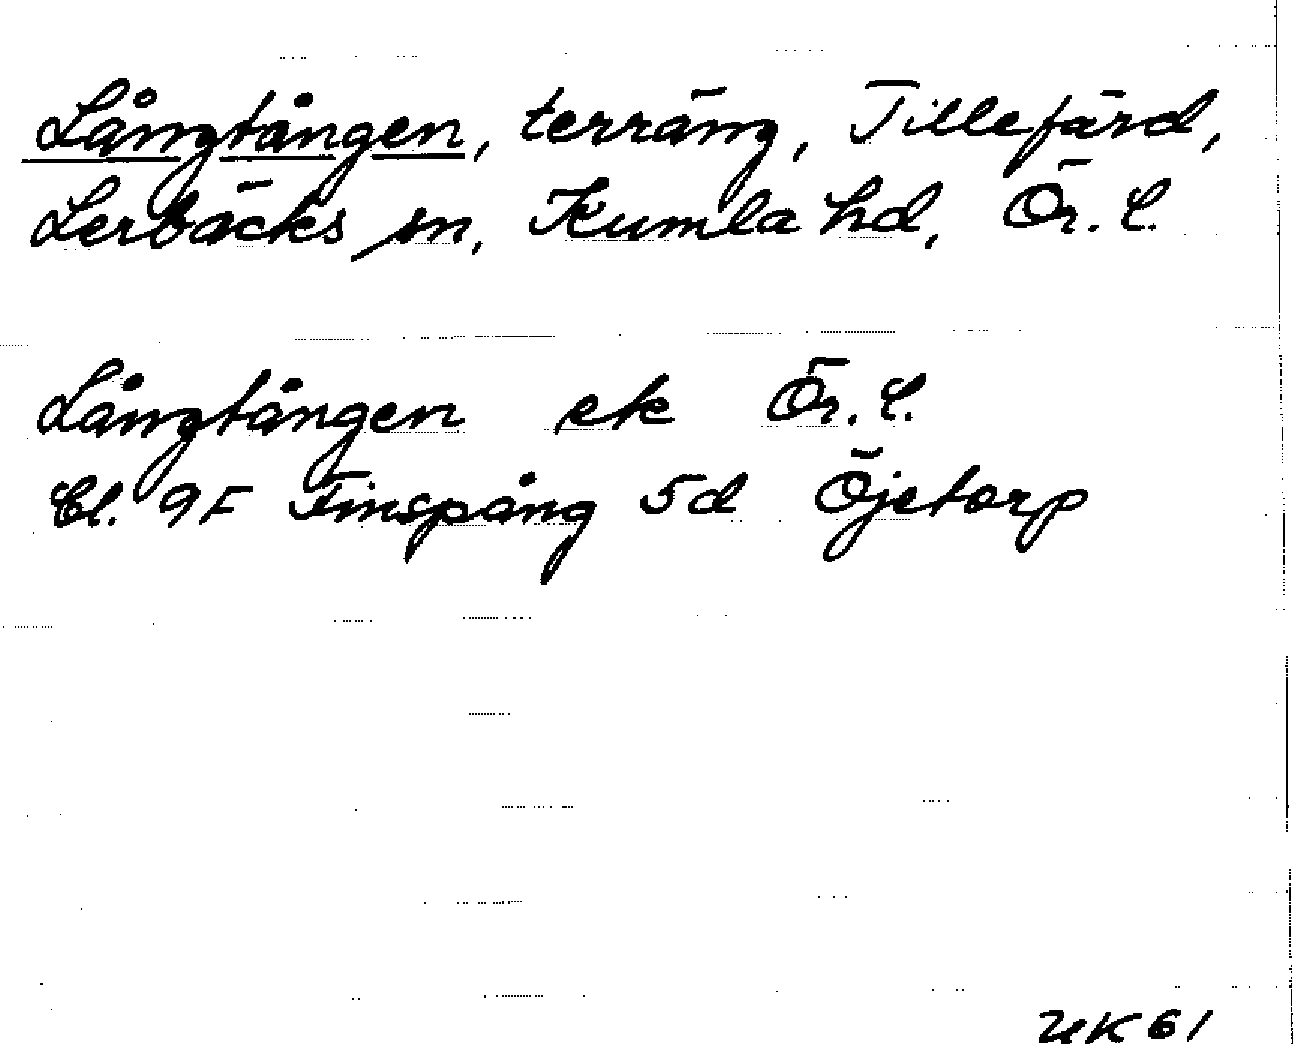 Långtången, terräng, Tillefärd,
Lerbäcks sn, Kumla hd, Ör. l.
Långtången ek Ör. l.
Bl. 9F Finspång 5d Öjetorp
UK 61